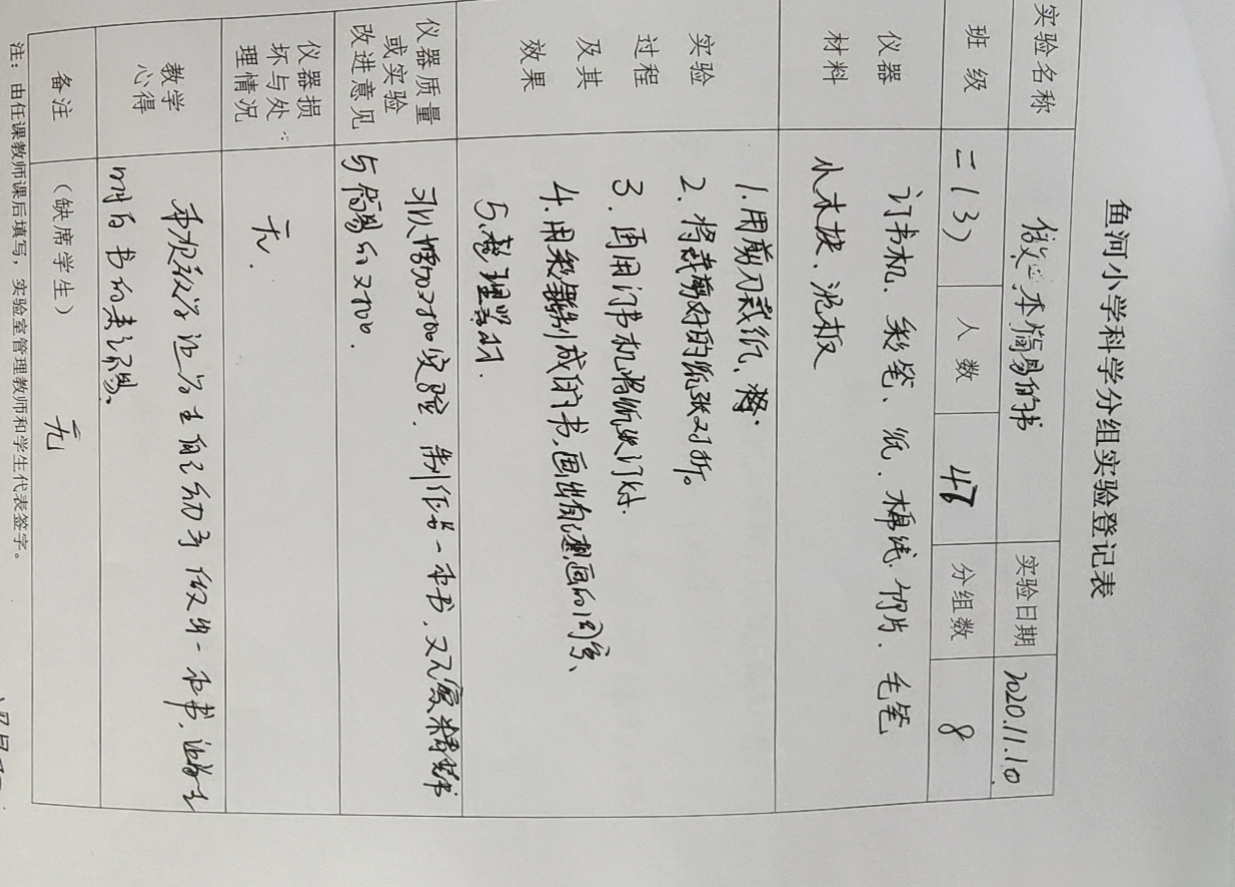 鱼河小学科学分组实验登记表
实验名称 做一本简易的书 实验日期 2020.11.10
班级 二(3) 人数 47 分组数 8
仪器材料
订书机、彩笔、纸、棉线、竹片、毛笔
小木块、泥板
实验过程及其效果
1.用剪刀裁纸、
2、将裁剪好的纸张对折。
3、再用订书机将纸张订好.
4.用彩笔制成的书,画出自己想画的内容、
5、整理器材.
仪器质量或实验改进意见
可以增加对比实验.制作一本书,又
与简易的对比.
仪器损坏与处理情况
无.
教学心得
本次教学让学生自己动手做出一本书,让学生
明白书的来之不易。
备注 (缺席学生) 无
注:由任课教师课后填写,实验室管理教师和学生代表签字。